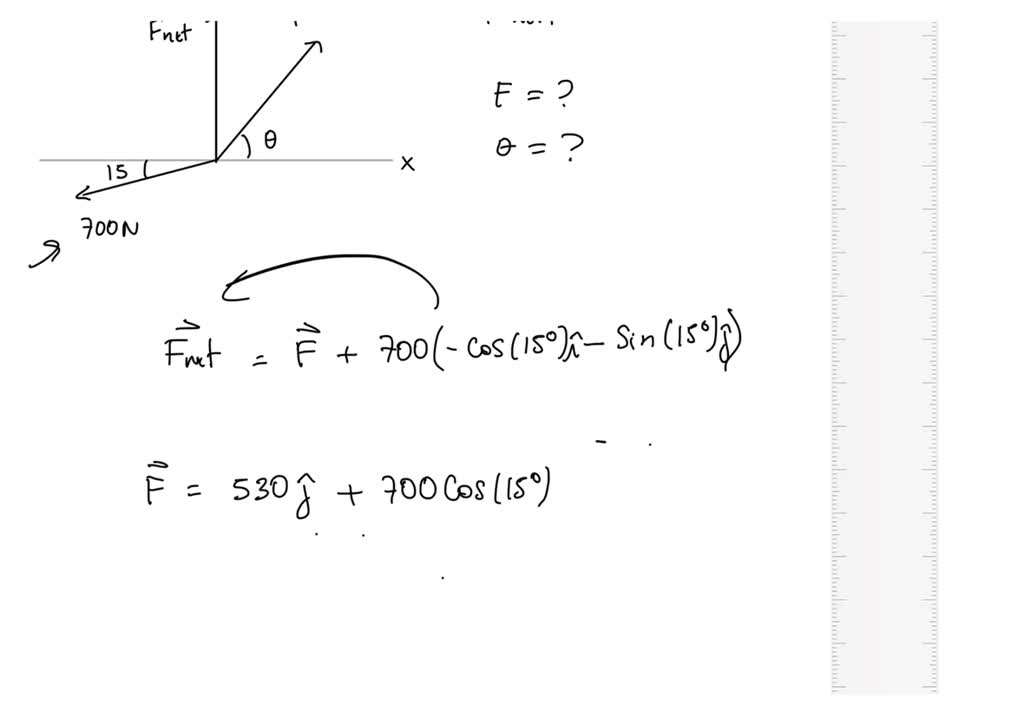 Fnet
F = ?
θ
θ = ?
x
15
700N
F⃗net = F⃗ + 700(-Cos(15°)î - Sin(15°)ĵ)
F⃗ = 530ĵ + 700Cos(15°)